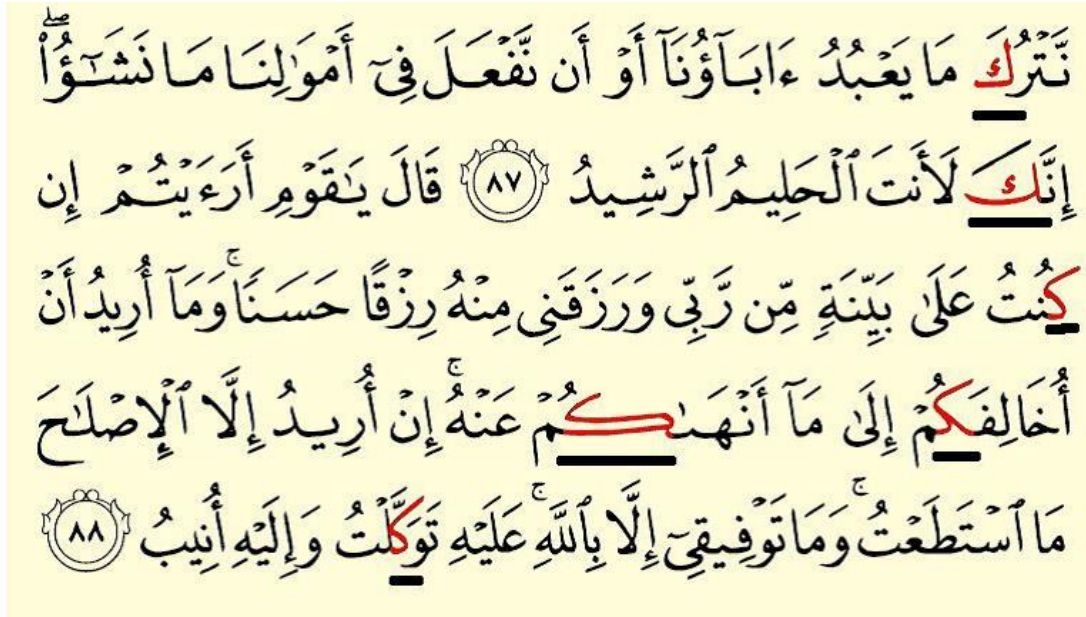 نَّتْرُكَ مَا يَعْبُدُ ءَابَآؤُنَآ أَوْ أَن نَّفْعَلَ فِىٓ أَمْوَٰلِنَا مَا نَشَـٰٓؤُا۟ ۖ
إِنَّكَ لَأَنتَ ٱلْحَلِيمُ ٱلرَّشِيدُ ٨٧ قَالَ يَـٰقَوْمِ أَرَءَيْتُمْ إِن
كُنتُ عَلَىٰ بَيِّنَةٍ مِّن رَّبِّى وَرَزَقَنِى مِنْهُ رِزْقًا حَسَنًا ۚ وَمَآ أُرِيدُ أَنْ
أُخَالِفَكُمْ إِلَىٰ مَآ أَنْهَىٰكُمْ عَنْهُ ۚ إِنْ أُرِيدُ إِلَّا ٱلْإِصْلَـٰحَ
مَا ٱسْتَطَعْتُ ۚ وَمَا تَوْفِيقِىٓ إِلَّا بِٱللَّهِ ۚ عَلَيْهِ تَوَكَّلْتُ وَإِلَيْهِ أُنِيبُ ٨٨